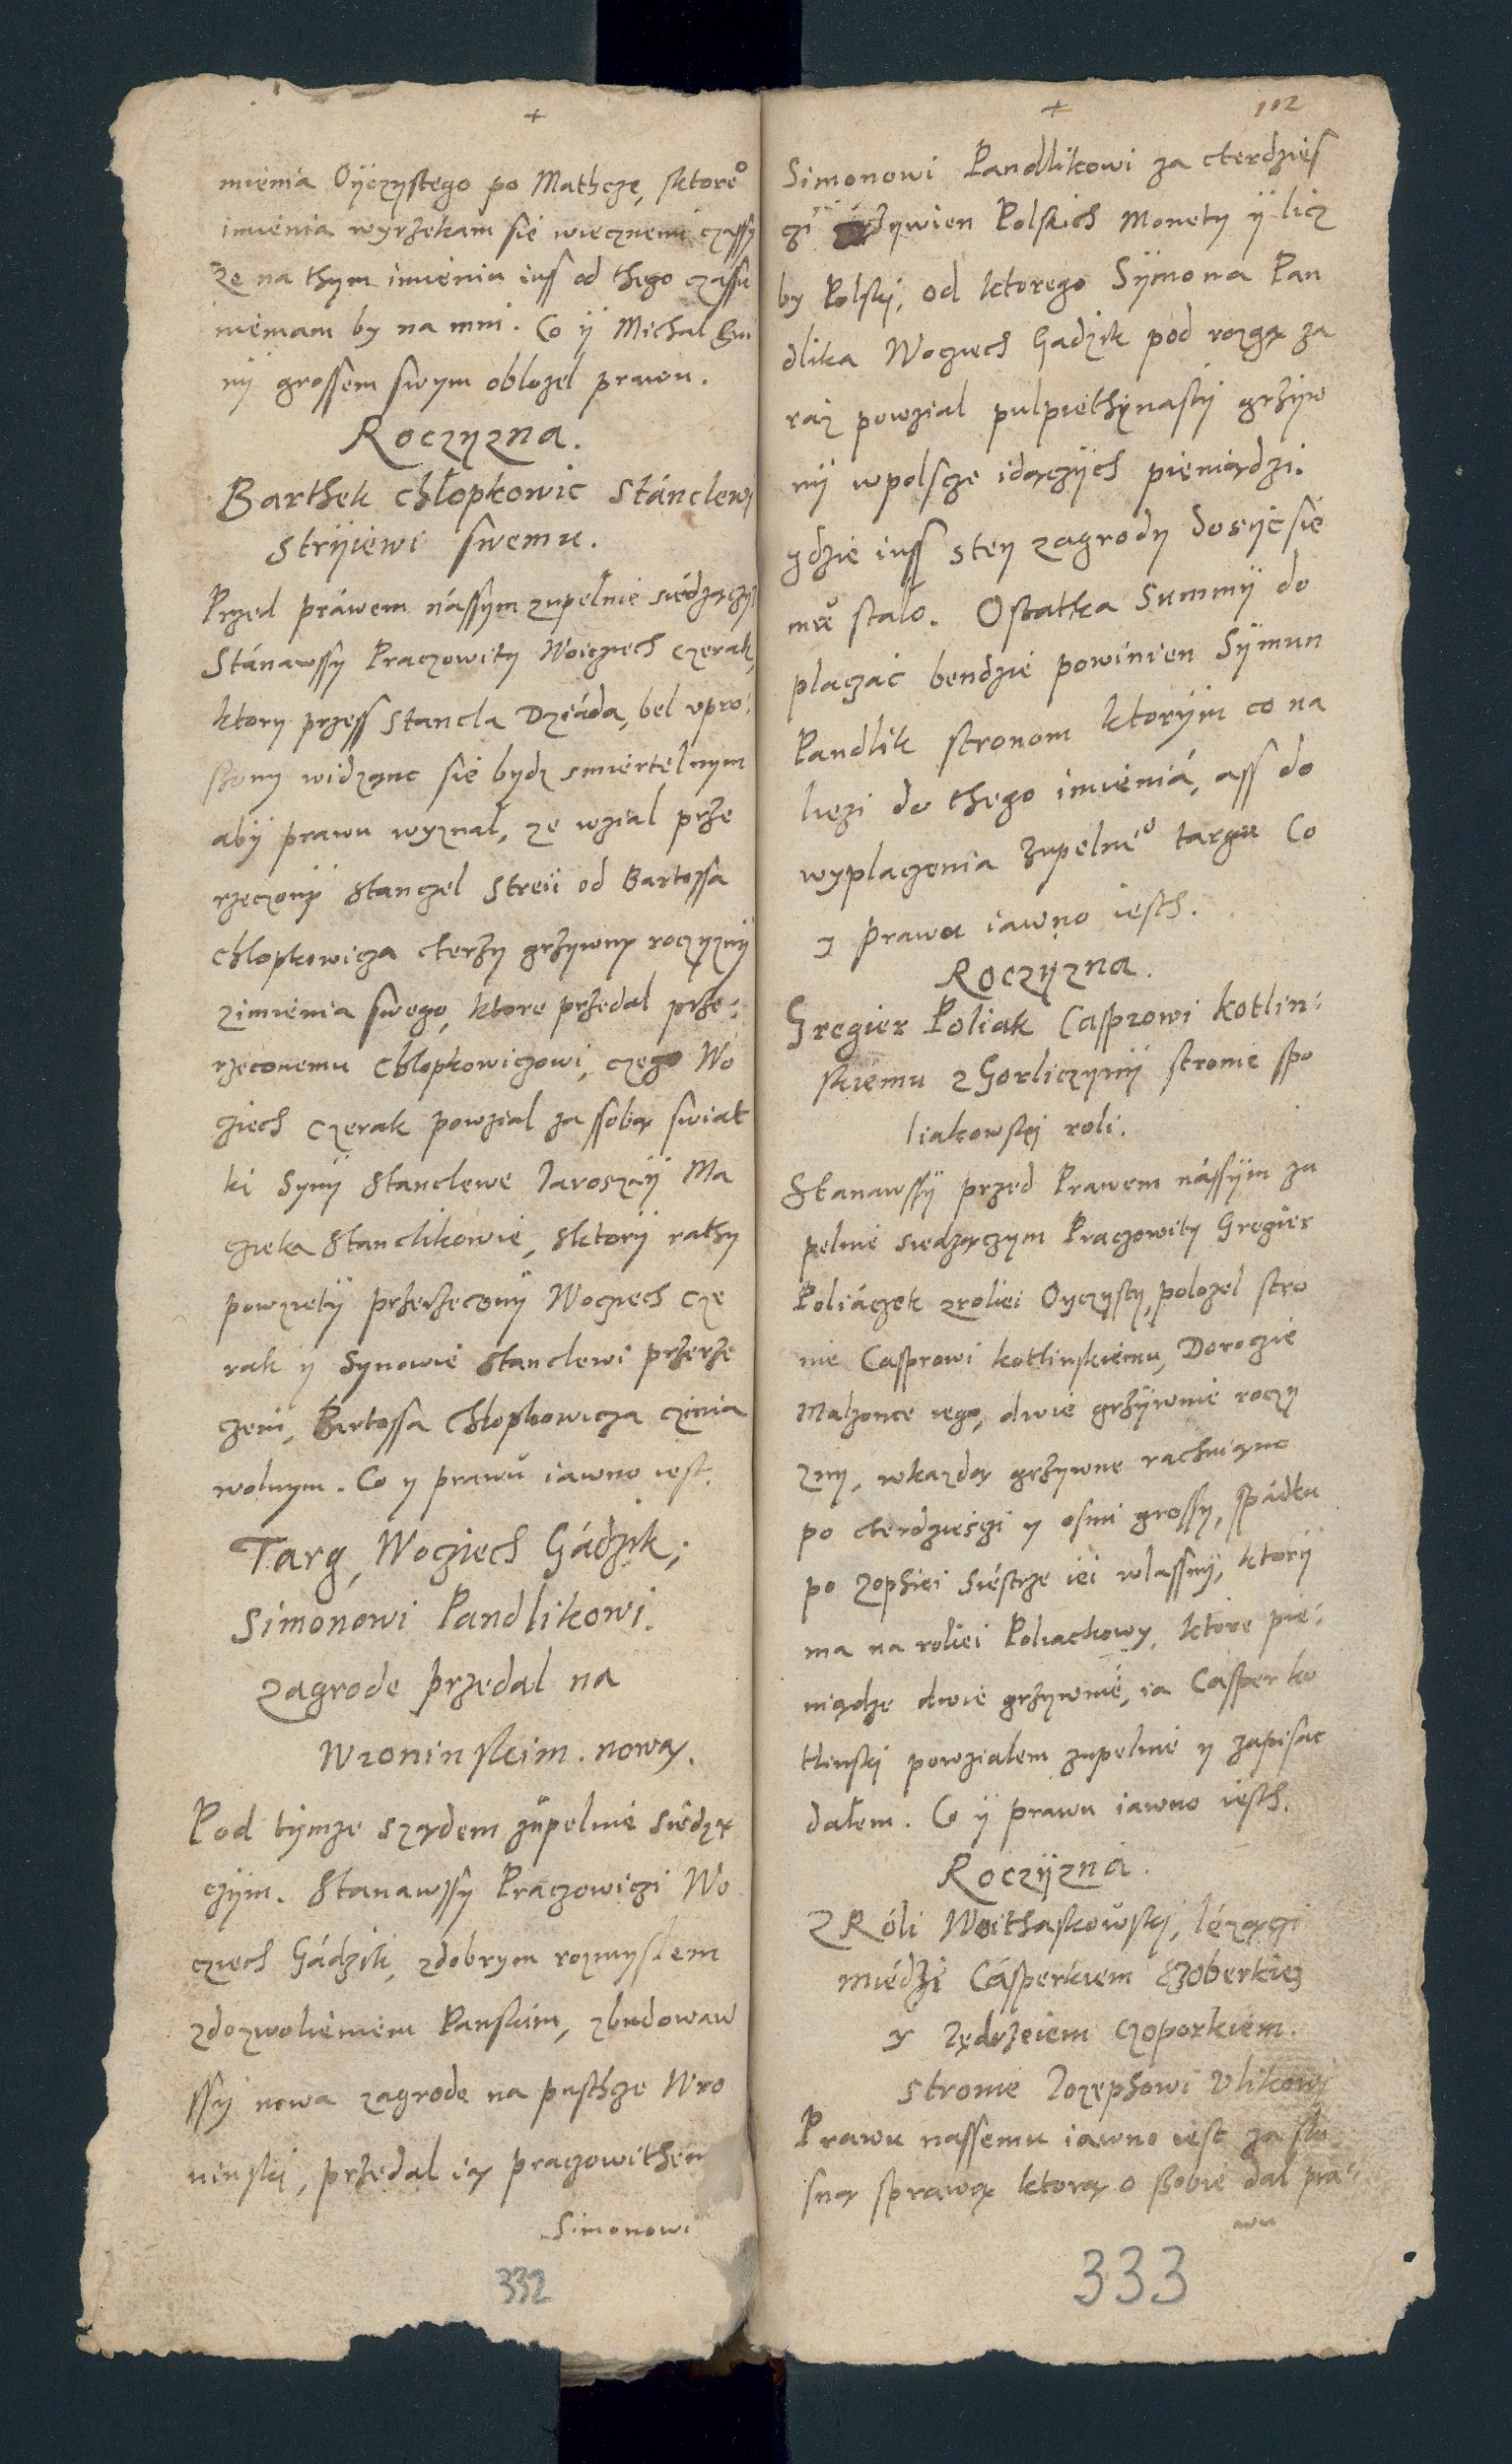 +
mienia Oÿczystego po Mathcze, sktoreº
imienia wyrzekam sie wiecznemi czassy
Ze na thym imieniu iuss od thego czassu
niemam by na mni. Co ÿ Michal
nÿ grossem swym oblozel prawu.
Roczyzna.
Barthek chłopkowic Stánclewi
Strÿiewi swemu.
Przed práwem nássym zupełnie siédzączy
Stánawssy Praczowity Woiciech Czerak,
ktory przess Stancla Dziáda, bel vpro:
szony widząnc sie bydz smiertelnym
abÿ prawu wyznał, ze wzial prze
rzeczonÿ Stanczel Streii od Bartossa
Chlopkowicza cterzy grzywny roczyznÿ
zimienia swego, ktore przedal prze:
rzeconemu Chlopkowiczowi, czego Wo
ziech Czerak powzial za ssobą swiat
ki Synÿ Stanclewe Jaroszÿ Ma
czieka Stanclikowie, sktorÿ rathy
powzietÿ przerzeczonÿ Wocziech Cze
rak y Synowie Stanclewi przerze
czeni, Bartossa Chlopkowicza czinia
wolnym. Co y prawu iawno iest.
Targ, Wocziech Gádzik,
Simonowi Pandlikowi.
zagrode przedal na
Wroninskim. nową.
Pod tÿmze sządem zupelnie siedzą
czÿm. Stanawssy Praczowiczi Wo
cziech Gádzik, zdobrym rozmyslem
zdozwoleniem Panskim, zbudowaw
ssÿ nowa zagrode na pusthcze Wro
ninski, przedal ią praczowithem
Simonowi
332
+
102
Simonowi Pandlikowi za cterdzies
czi grzywien Polskich Monety ÿ licz
by Polski, od ktorego Sÿmona Pan
dlika Wocziech Gadzik pod rozgą za
raz powzial pulpiethÿnastÿ grzÿw
nÿ wpolscze idączÿch pieniądzi.
gdzie iuss stey zagrody dosyć sie
mu stalo. Ostatka Summÿ do
placzac bendzie powinien Sÿmun
Pandlik stronom ktorÿm co na
liezi do thego imieniá, ass do
wyplaczenia zupelnéº targu Co
y prawu iawno iesth.
Roczyzna.
Gregier Poliak Casprowi kotlin:
skiemu z Gorliczynÿ stronie spo
liakowski roli.
Stanawssÿ przed Prawem nássÿm zu
pelnie siedzączym Praczowity Gregier
Poliáczek zroliei Oyczysty, polozel stro
nie Casprowi kotlinskiemu, Doroczie
Malzonce iego, dwie grzÿwnie roczy
zny, wkazdą grzywne rachuiąnc
po cterdzieszi y osmi grossy, spádku
po Zophiei Siéstrze iei wlassny, ktorÿ
ma na roliei Poliackowy, ktore pie:
niądze dwie grzywnie, ia Casper ko
tlinski powzialem zupelnie y zapisac
dałem. Co ÿ prawu iawno iesth.
Roczÿzná.
Z Róli Woithaskowski, lézączi
miédzi Cásperkiem
y Jędrzeiem Czoporkiem.
stronie Jozephowi Vlikowi
Prawu nassemu iawno iest za slu
sną sprawą ktorą o ssobie dal pra:
wu
333